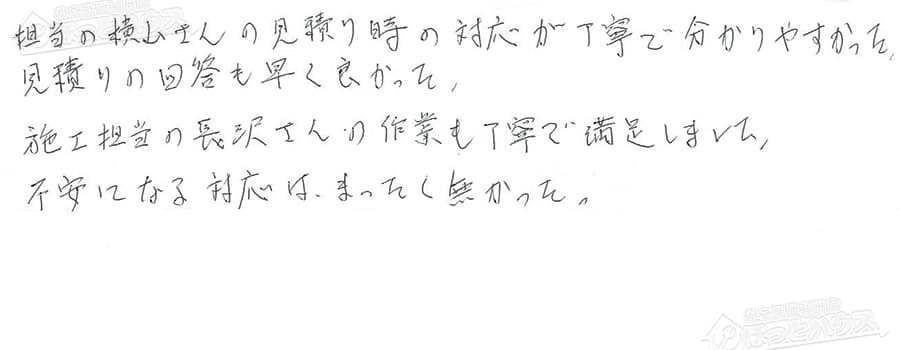 担当の横山さんの見積り時の対応が丁寧で分かりやすかった。
見積りの回答も早く良かった。
施工担当の長沢さんの作業も丁寧で満足しました。
不安になる対応は、まったく無かった。
ほっとハウス